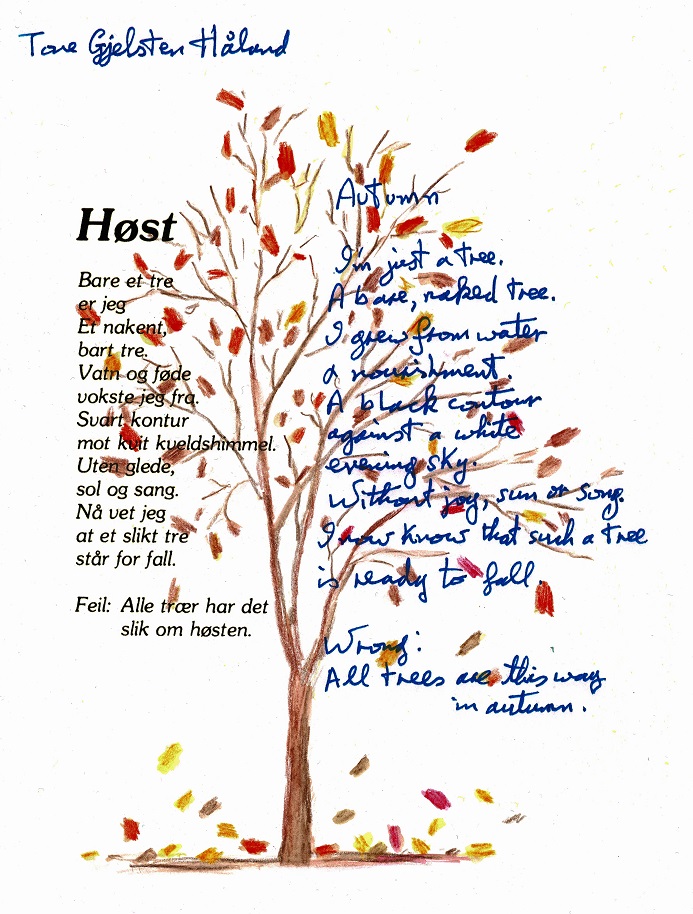 Tone Gjelsten Håland
Høst
Bare et tre
er jeg
Et nakent,
bart tre.
Vatn og føde
vokste jeg fra.
Svart kontur
mot kvit kveldshimmel.
Uten glede,
sol og sang.
Nå vet jeg
at et slikt tre
står for fall.
Feil: Alle trær har det
slik om høsten.
Autumn
I'm just a tree.
A bare, naked tree.
I grew from water
& nourishment.
A black contour
against a white
evening sky.
Without joy, sun or song.
I now know that such a tree
is ready to fall.
Wrong:
All trees are this way
in autumn.